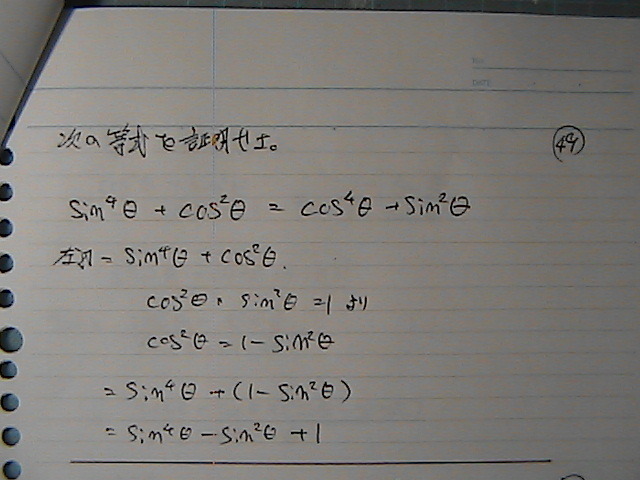 No.
DATE
次の等式を証明せよ。
㊾
sin⁴θ + cos²θ = cos⁴θ + sin²θ
左辺 = sin⁴θ + cos²θ.
cos²θ + sin²θ = 1 より
cos²θ = 1 - sin²θ
= sin⁴θ + (1 - sin²θ)
= sin⁴θ - sin²θ + 1